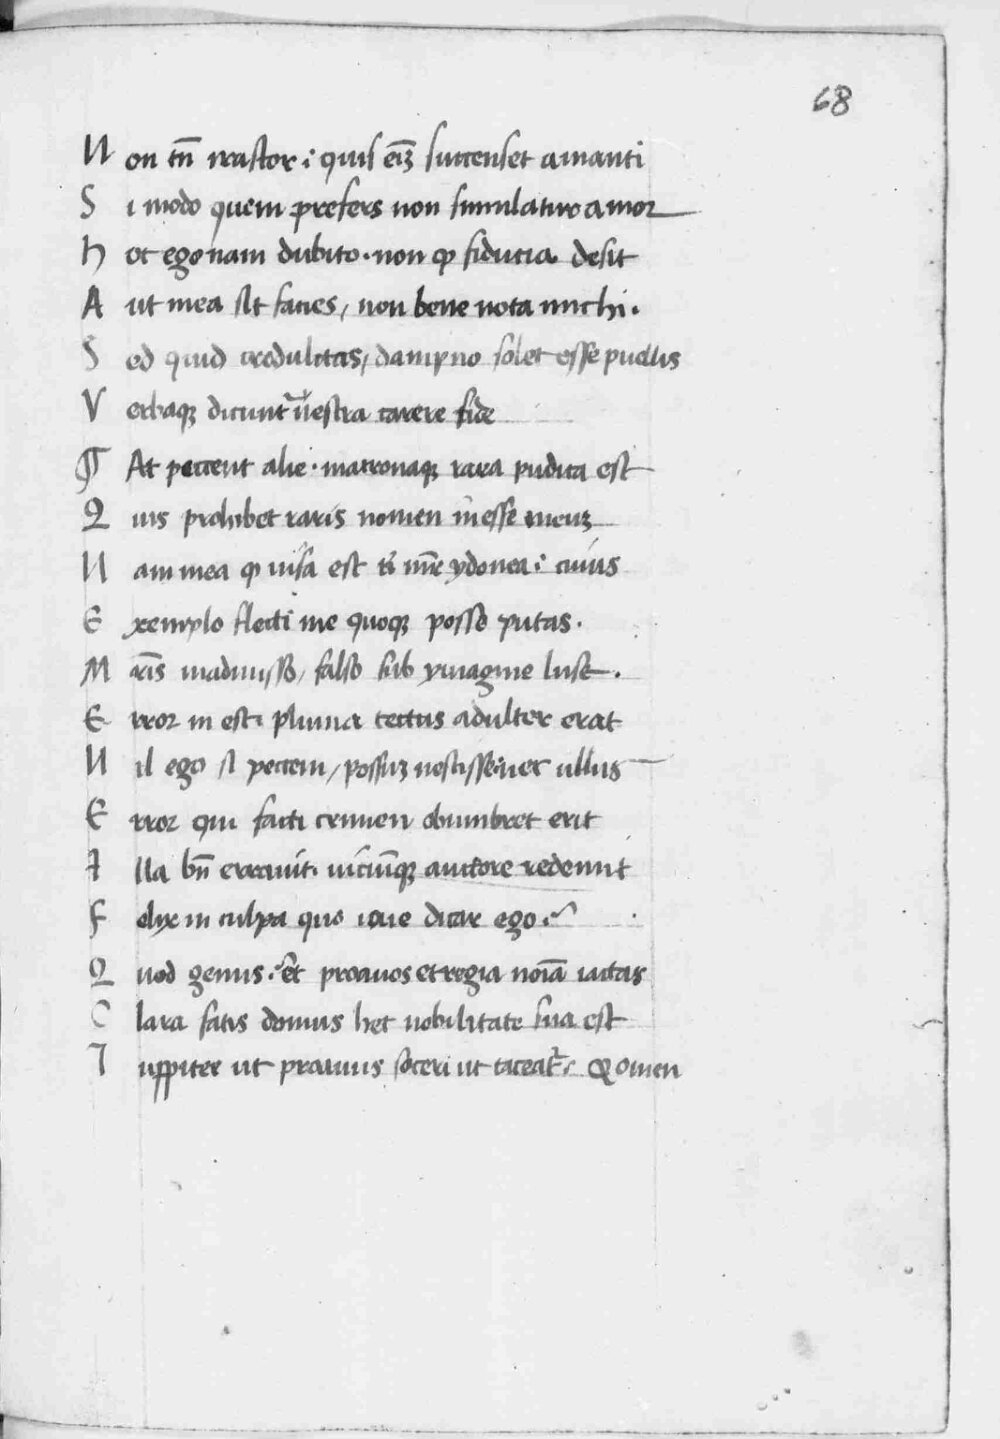 68
Non tn̄ irascor: quis eīz succenset amanti
Si modo quem prefers non simulatur amor
Hoc ego nam dubito. non ꝙ fiducia desit
Aut mea sit facies, non bene nota michi.
Sed quid credulitas, dampno solet esse puellis
Verbaqꝫ dicunt᷑ vestra carere fide
¶ At peccent alie. matronaqꝫ rara pudica est
Quis prohibet raris nomen inesse meuꝫ
Nam mea ꝙ uisa est tī mr̄e ydonea: cuius
Exemplo flecti me quoqꝫ posse putas.
Mr̄is in admisso, falso sub ymagine luse.
Error in est: pluma tectus adulter erat
Nil ego si peccem, possuꝫ nescisse: nec ullus
Error qui facti crimen obumbret erit
Illa bn̄ erravit. uiciūqꝫ auctore redemit
Felix in culpa quo ioue dicar ego.
Quod genus. et proavos et regia noīa iactas
Clara satis domus hec nobilitate sua est
Iuppiter ut proavus soceri ut taceat᷑: Qomen